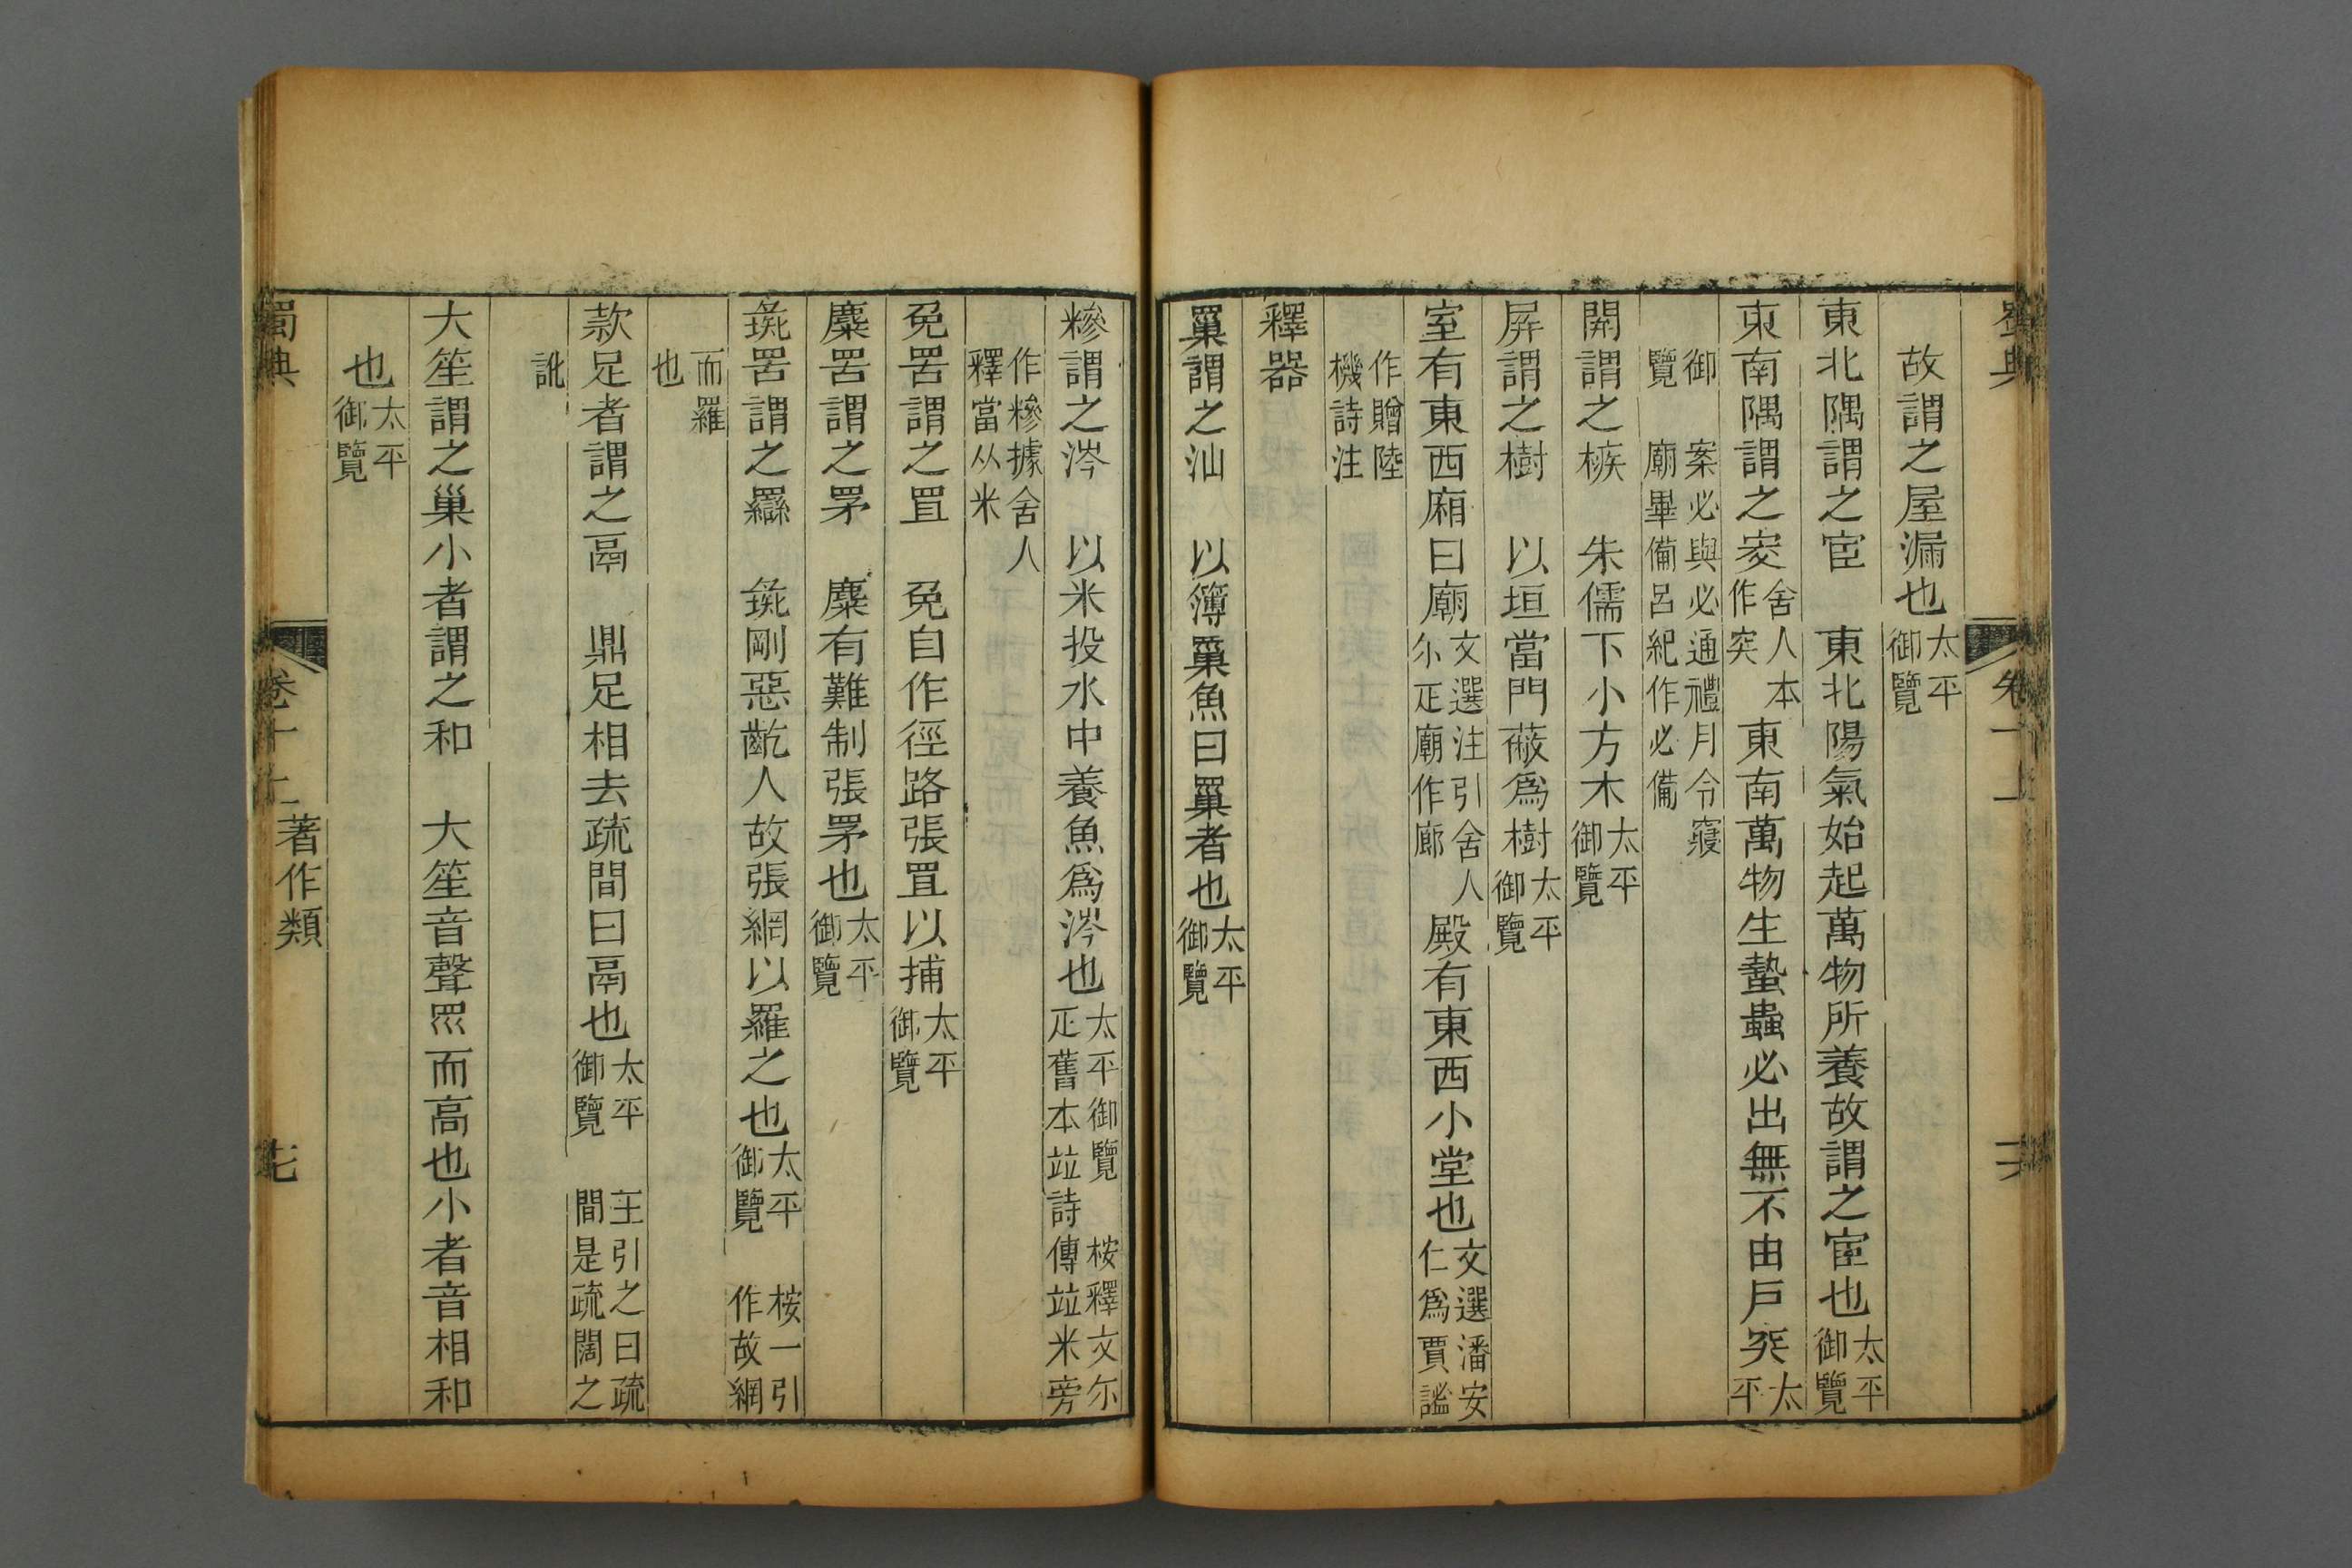 蜀典
卷十上
故謂之屋漏也太平御覽
東北隅謂之宧　東北陽氣始起萬物所養故謂之宧也太平御覽
東南隅謂之㝔舍人本作突　東南萬物生蟄蟲必出無不由戶突太平
御覽　案必與必通禮月令寢廟畢備呂紀作必備
開謂之槉　朱儒下小方木太平御覽
屏謂之樹　以垣當門蔽爲樹太平御覽
室有東西廂曰廟文選注引舍人尔疋廟作廊　殿有東西小堂也文選潘安仁爲賈謐
作贈陸機詩注
釋器
罺謂之汕　以簿罺魚曰罺者也太平御覽
糝謂之涔　以米投水中養魚爲涔也太平御覽　桉釋文尔疋舊本竝詩傳竝米旁
作糝據舍人釋當从米
免罟謂之罝　免自作徑路張罝以捕太平御覽
麋罟謂之罞　麋有難制張罞也太平御覽
彘罟謂之羉　彘剛惡齕人故張網以羅之也太平御覽　桉一引作故網
而羅也
款足者謂之鬲　鼎足相去疏間曰鬲也太平御覽　王引之曰疏間是疏闊之
訛
大笙謂之巢小者謂之和　大笙音聲眾而高也小者音相和
也太平御覽
蜀典
卷十上
著作類